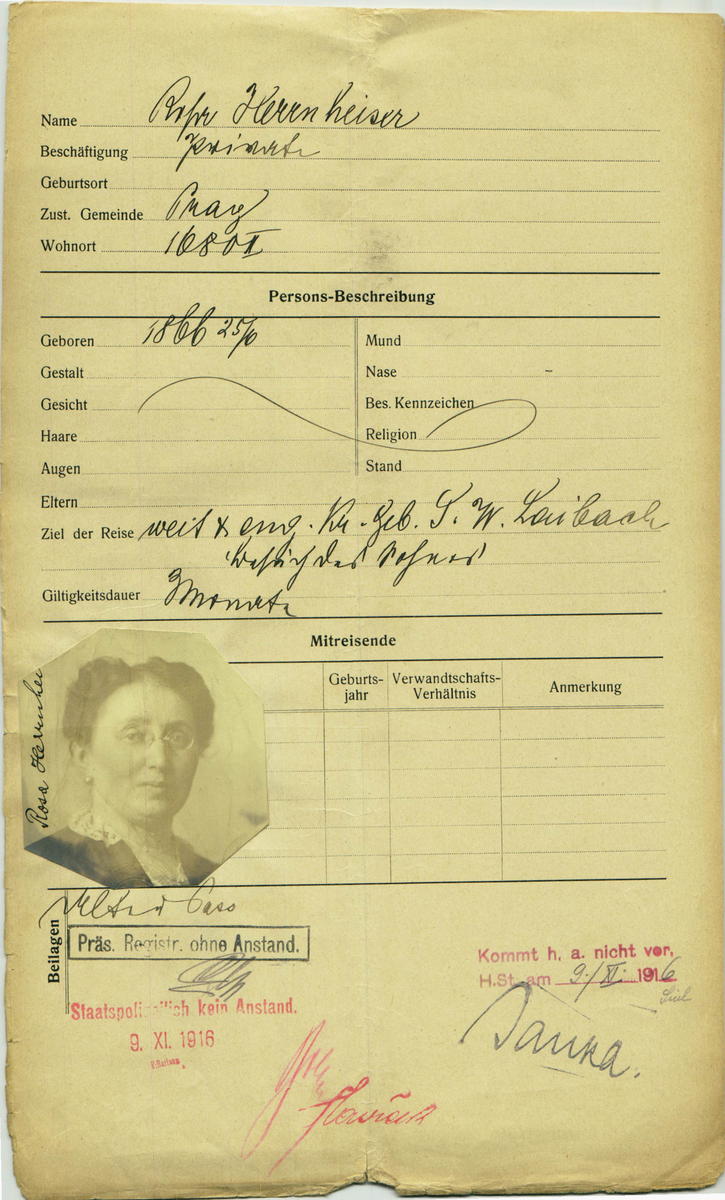 Name Rosa Herrnheiser
Beschäftigung Private
Geburtsort
Zust. Gemeinde Prag
Wohnort 1680 II
Persons-Beschreibung
Geboren 1866 25/6
Mund
Gestalt
Nase -
Gesicht
Bes. Kennzeichen
Haare
Religion
Augen
Stand
Eltern
Ziel der Reise weit & eng. Kr. Geb. S. W. Laibach
Besuch des Sohnes
Giltigkeitsdauer 3 Monate
Mitreisende
Geburts-
jahr
Verwandtschafts-
Verhältnis
Anmerkung
Rosa Herrnhei
Beilagen
Alter Pass
Präs. Registr. ohne Anstand.
Kommt h. a. nicht vor,
H.St. am 9./XI. 1916
Staatspolizeilich kein Anstand.
9. XI. 1916